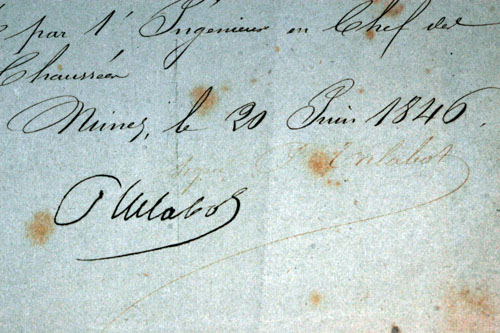 par l'Ingénieur en Chef des
Chaussées
Nimes, le 20 Juin 1846.
Signé P. Talabot
P Talabot